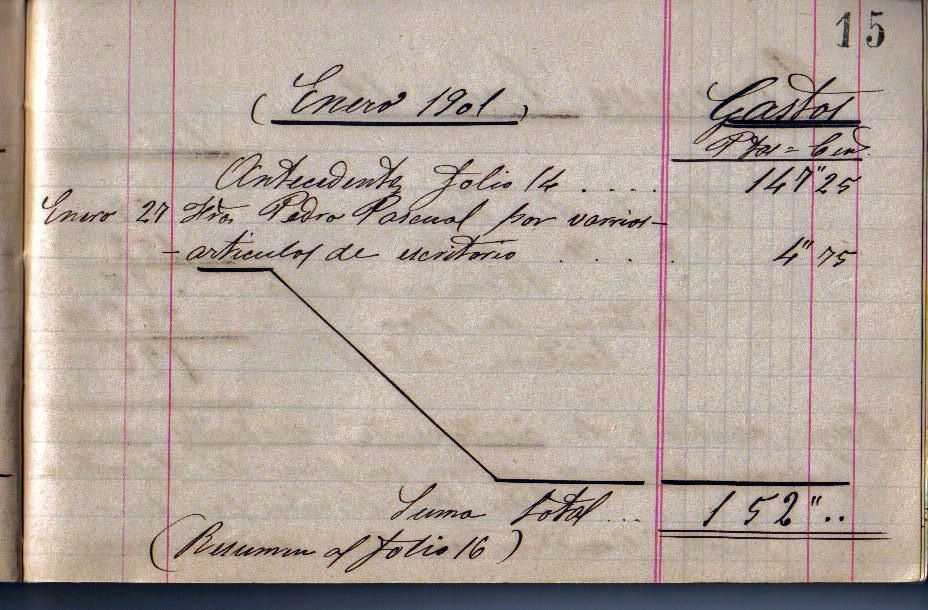 15
(Enero 1901) Gastos
Ptas = Cen.
Antecedente folio 14 ..... 147"25
Enero 27 Fra. Pedro Pascual por varios-
-articulos de escritorio ..... 4"75
Suma total ... 152"..
(Resumen al folio 16)